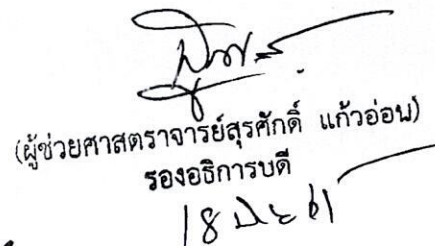 (ผู้ช่วยศาสตราจารย์สุรศักดิ์ แก้วอ่อน)
รองอธิการบดี
18 มิ.ย 61